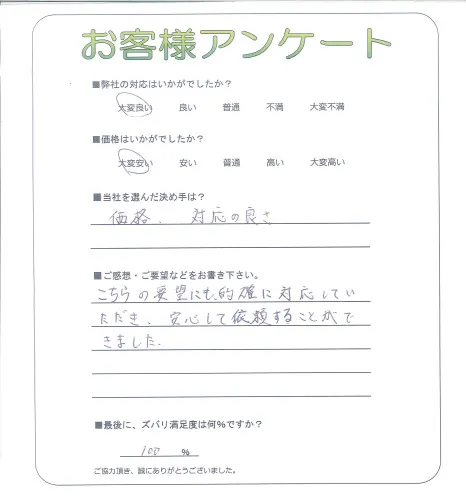 お客様アンケート
■弊社の対応はいかがでしたか？
大変良い 良い 普通 不満 大変不満
■価格はいかがでしたか？
大変安い 安い 普通 高い 大変高い
■当社を選んだ決め手は？
価格、対応の良さ
■ご感想・ご要望などをお書き下さい。
こちらの要望にも的確に対応してい
ただき、安心して依頼することがで
きました。
■最後に、ズバリ満足度は何%ですか？
100 %
ご協力頂き、誠にありがとうございました。